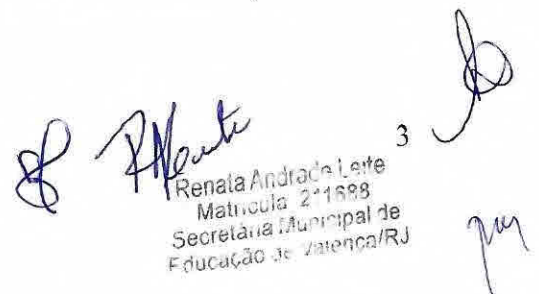 3
Renata Andrade Leite
Matricula 211688
Secretária Municipal de
Educação de Valença/RJ